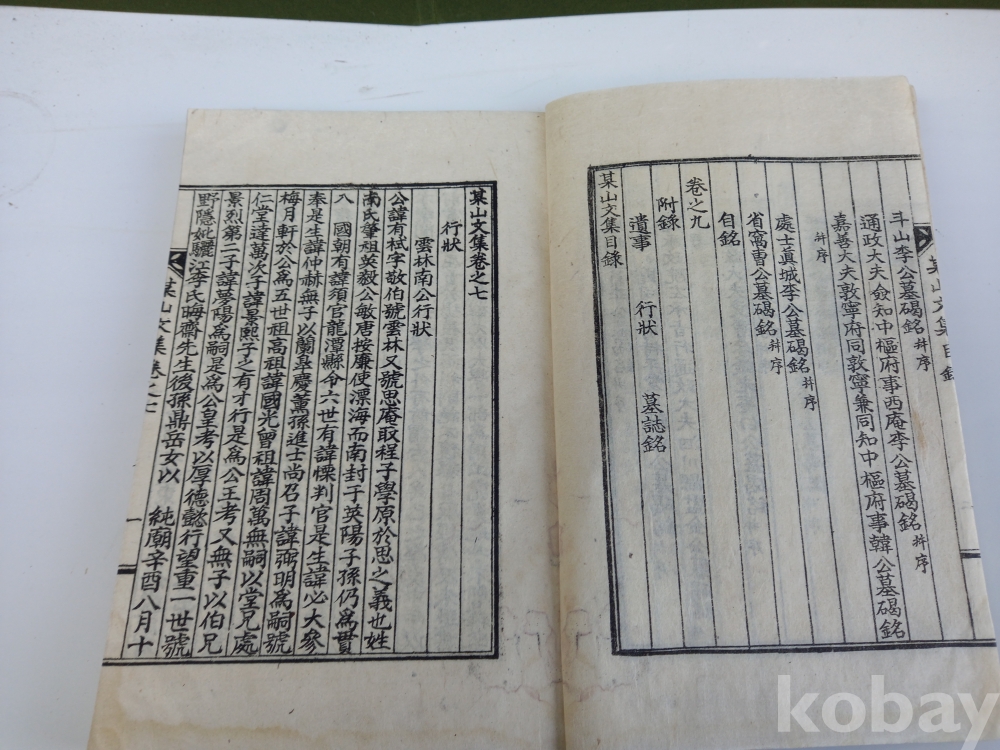 斗山李公墓碣銘 幷序
通政大夫僉知中樞府事西庵李公墓碣銘 幷序
嘉善大夫敦寧府同敦寧兼同知中樞府事韓公墓碣銘
幷序
處士眞城李公墓碣銘 幷序
省窩曺公墓碣銘 幷序
自銘
卷之九
附錄
遺事 行狀 墓誌銘
某山文集目錄
某山文集目錄
某山文集卷之七
行狀
雲林南公行狀
公諱有栻字敬伯號雲林又號思庵取程子學原於思之義也姓
南氏肇祖英毅公敏唐按廉使漂海而南封于英陽子孫仍爲貫
入 國朝有諱須官龍潭縣令六世有諱慄判官是生諱必大參
奉是生諱仲赫無子以蘭皐慶薰孫進士尚召子諱弼明爲嗣號
梅月軒於公爲五世祖高祖諱國光曾祖諱周萬無嗣以堂兄處
仁堂諱萬次子諱景熙子之有才行是爲公王考又無子以伯兄
景烈第二子諱夢陽爲嗣是爲公皇考以厚德懿行望重一世號
野隱妣驪江李氏晦齋先生後孫鼎岳女以 純廟辛酉八月十
某山文集卷之七
一
kobay